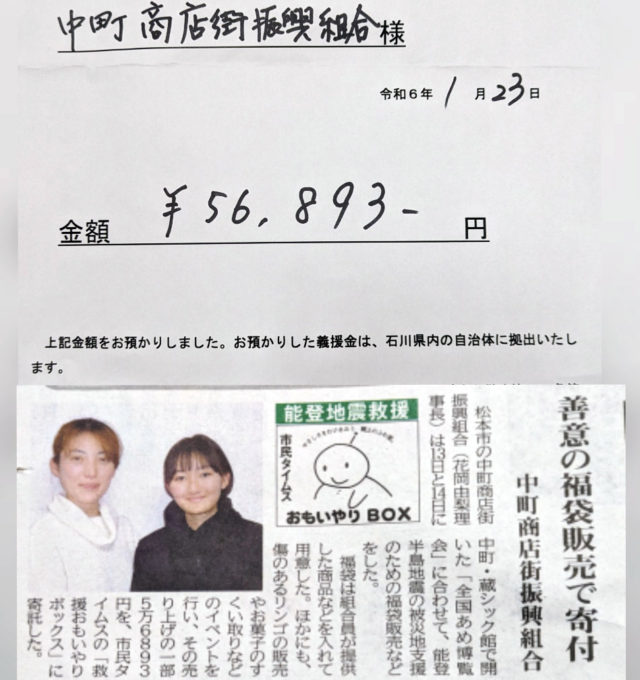 中町商店街振興組合様
令和6年 1月23日
金額 ¥56,893- 円
上記金額をお預かりしました。お預かりした義援金は、石川県内の自治体に拠出いたし
ます。
善意の福袋販売で寄付
中町商店街振興組合
能登地震救援
市民タイムス
おもいやりBOX
松本市の中町商店街
振興組合(花岡由梨理
事長)は13日と14日に
中町・蔵シック館で開
いた「全国あめ博覧
会」に合わせて、能登
半島地震の被災地支援
のための福袋販売など
をした。
福袋は組合員が提供
した商品などを入れて
用意した。ほかにも、
傷のあるリンゴの販売
やお菓子のす
くい取りなど
のイベントを
行い、その売
り上げの一部
5万6893
円を、市民タ
イムスの「救
援おもいやり
ボックス」に
寄託した。